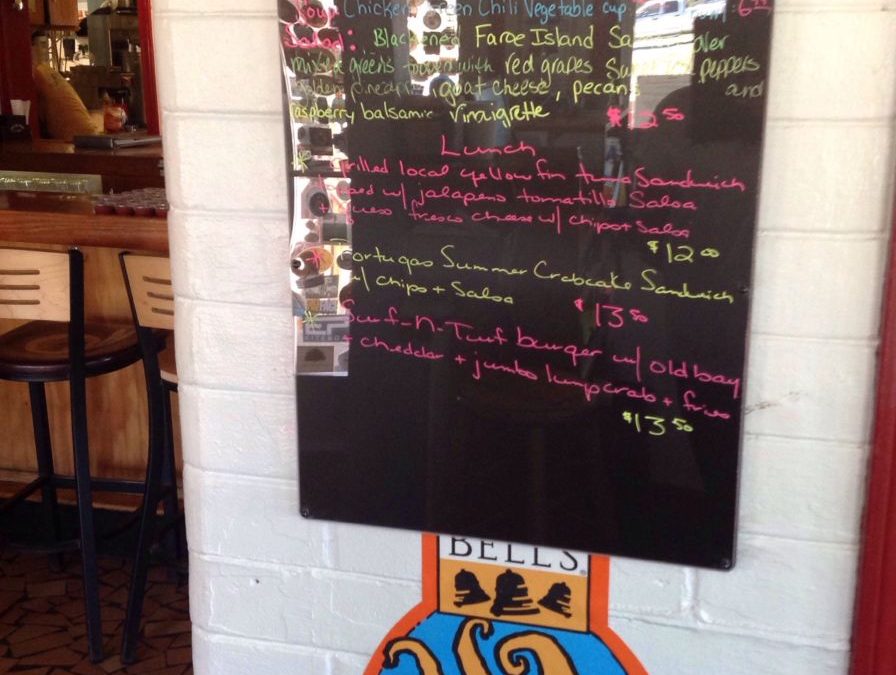 Soup: Chicken Green Chili Vegetable cup
Salad: Blackened Faroe Island
mixed greens topped with red grapes peppers
goat cheese, pecans and
raspberry balsamic vinaigrette $12 50
Lunch
* Grilled local yellow fin tuna Sandwich
topped w/ jalapeno tomatillo Salsa
+ queso fresco cheese w/ chips + Salsa
$12 00
* Tortugas Summer Crabcake Sandwich
w/ chips + Salsa $13 50
* Surf-n-Turf burger w/ old bay
+ cheddar + jumbo lump crab + fries
$13 50
BELL'S